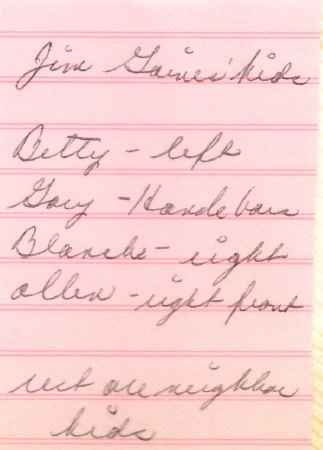 Jim Gaines' kids
Betty - left
Gary - Handebars
Blanche - right
Allen - right front
rest are neighbor
kids